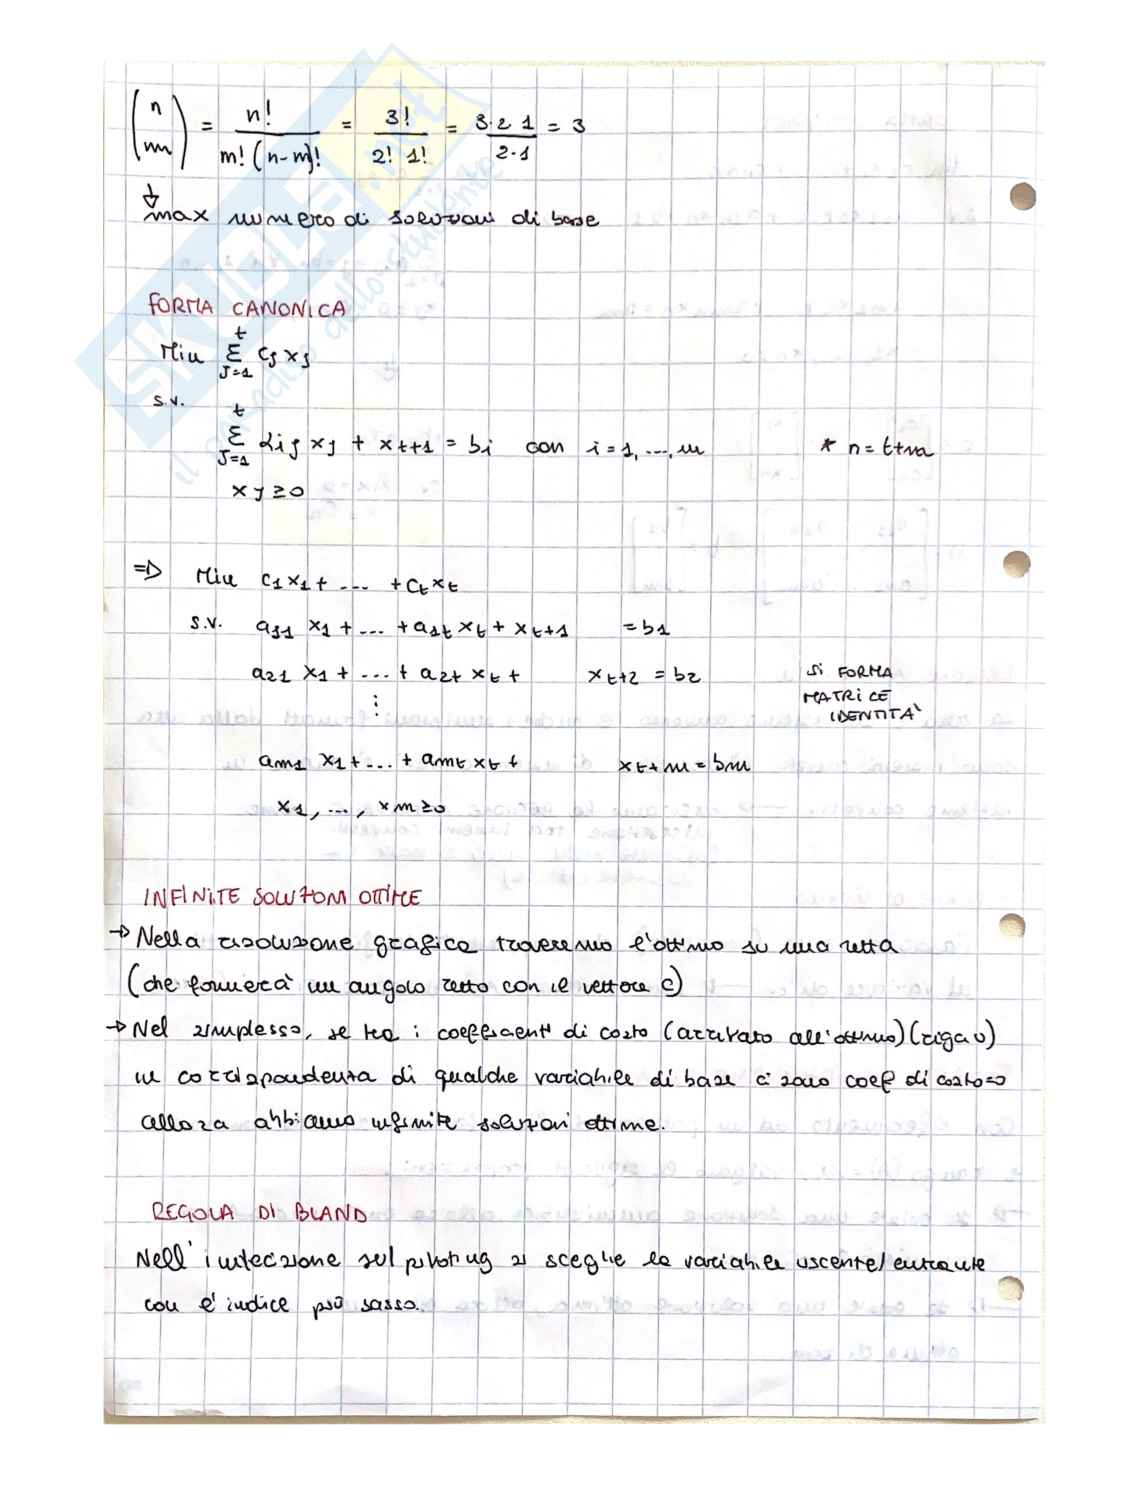 (n m) = n! / m! (n-m)! = 3! / 2! 1! = 3·2·1 / 2·1 = 3
↓
max numero di soluzioni di base
FORMA CANONICA
Min Σ_{J=1}^{t} cj xj
s.v.
Σ_{J=1}^{t} aij xj + xt+1 = bi con i=1,...,m * n=t+m
xj ≥0
=D Min c1x1+ ... +ctxt
S.V. a11 x1+...+a1t xt+ xt+1 =b1
a21 x1+...+a2t xt+ xt+2 =b2
Si FORMA
MATRiCE
IDENTITA'
⋮
am1 x1+...+ amt xt+ xt+m=bm
x1,...,xm≥0
INFINiTE SOLUZIONI OTTIME
→ Nella risoluzione grafica troveremo l'ottimo su una retta
(che formerà un angolo retto con il vettore c)
→ Nel simplesso, se tra i coefficienti di costo (arrivato all'ottimo)(riga 0)
in corrispondenza di qualche variabile di base ci sono coef di costo=0
allora abbiamo infinite soluzioni ottime.
REGOLA DI BLAND
Nell' iterazione sul pivoting si sceglie la variabile uscente/entrante
con l'indice più basso.
SKUOLA.net
il paradiso dello studente